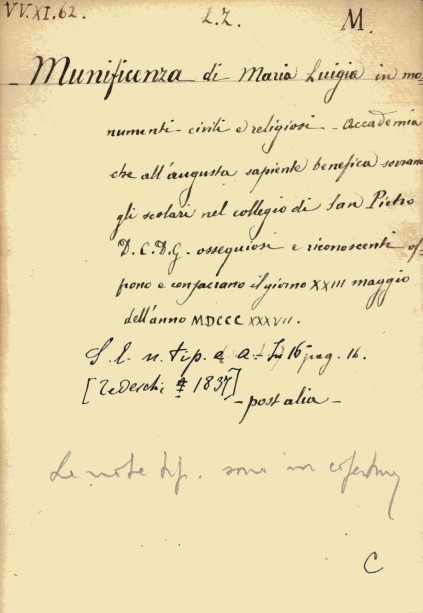 VV.XI.62. L.Z. M.
Munificenza di Maria Luigia in mo-
numenti civili e religiosi - Accademia
che all'augusta sapiente benefica sovrana
gli scolari nel collegio di San Pietro
D.C.D.G. ossequiosi e riconoscenti of-
frono e consacrano il giorno XXIII maggio
dell'anno MDCCCXXXVII.
S. l. n. tip. e a. - In 16 - pag. 16.
[Tedeschi 1837]
- post alia -
Le note tip. sono in copertina
C